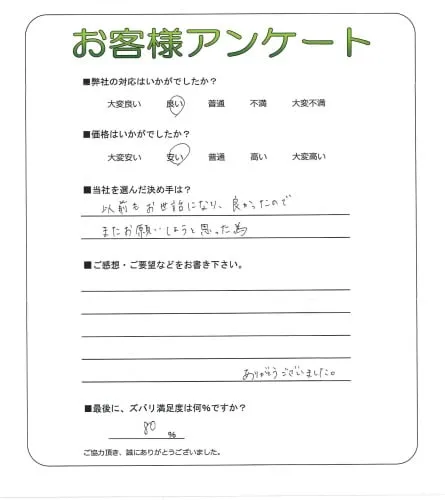 お客様アンケート
■弊社の対応はいかがでしたか？
大変良い 良い 普通 不満 大変不満
■価格はいかがでしたか？
大変安い 安い 普通 高い 大変高い
■当社を選んだ決め手は？
以前もお世話になり、良かったので
またお願いしようと思った為
■ご感想・ご要望などをお書き下さい。
ありがとうございました。
■最後に、ズバリ満足度は何%ですか？
80 %
ご協力頂き、誠にありがとうございました。